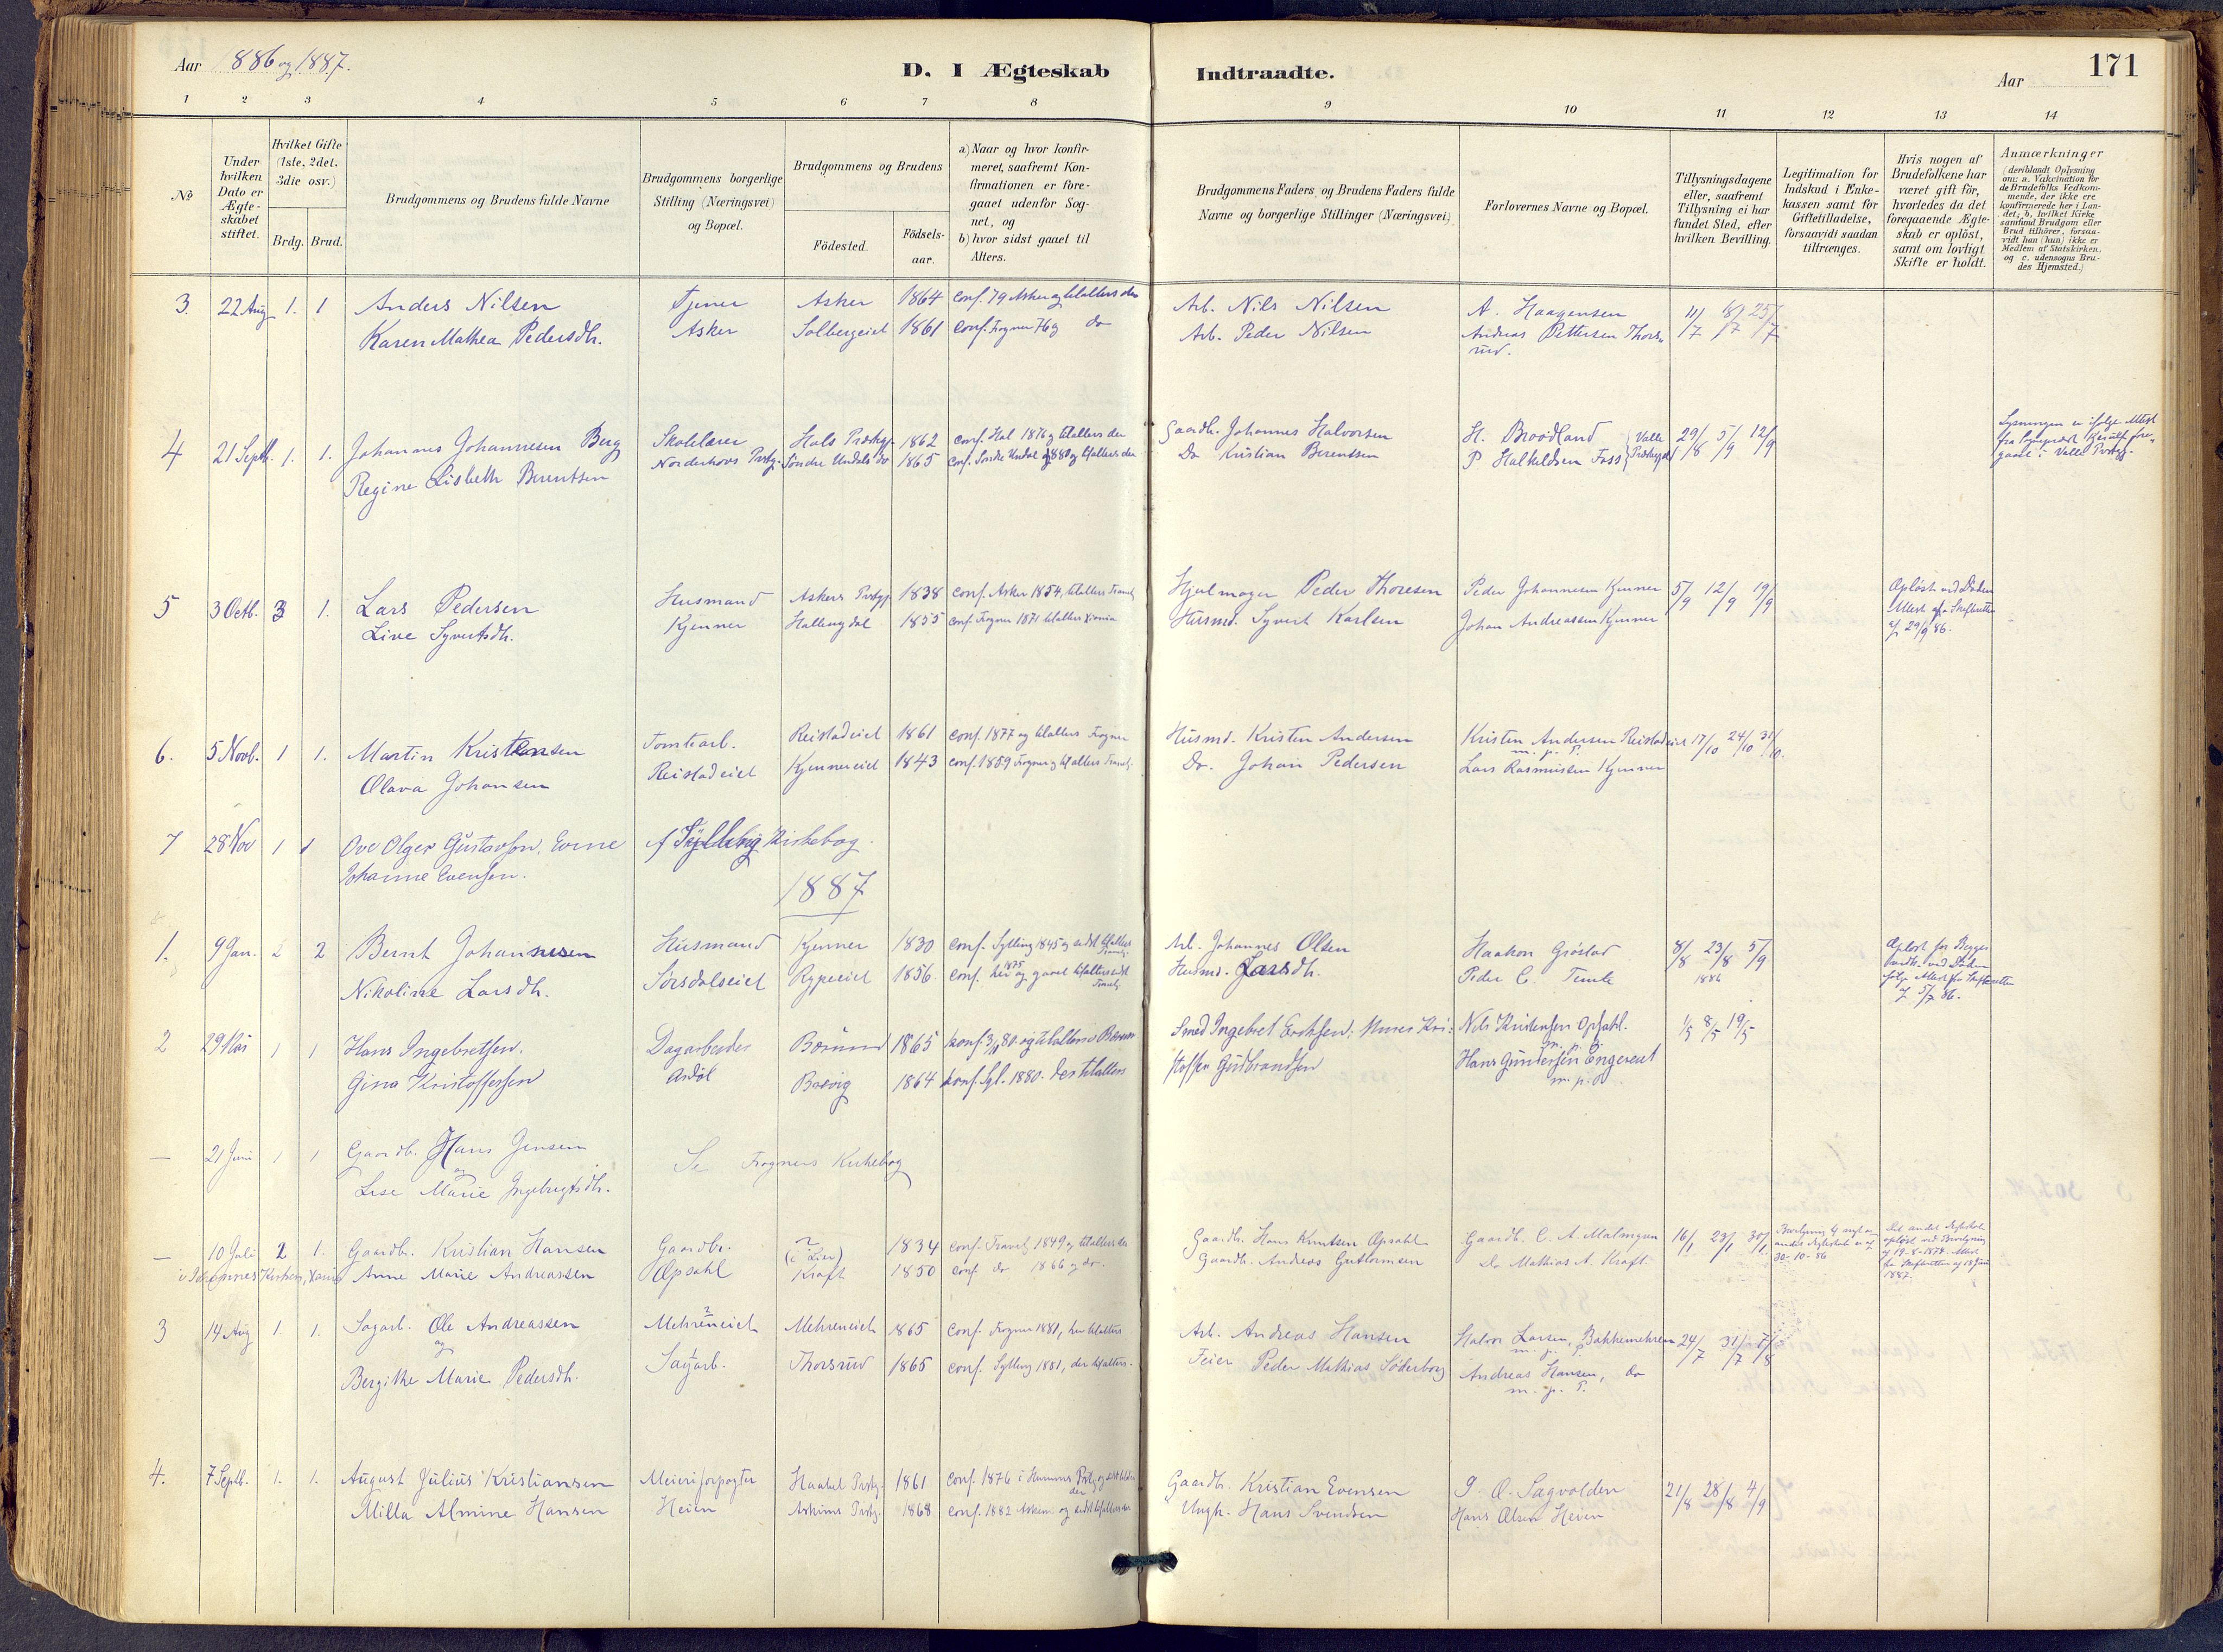 Aar 1886 og 1887.
D. I Ægteskab Indtraadte.
Aar 171
1 2 3 4 5 6 7 8 9 10 11 12 13 14
No
Under hvilken Dato er Ægteskabet stiftet.
Hvilket Gifte (1ste, 2det, 3die osv.)
Brdg. Brud.
Brudgommens og Brudens fulde Navne
Brudgommens borgerlige Stilling (Næringsvei) og Bopæl.
Brudgommens og Brudens
Födested.
Födselsaar.
a) Naar og hvor konfirmeret, saafremt Konfirmationen er foregaaet udenfor Sognet, og
b) hvor sidst gaaet til Alters.
Brudgommens Faders og Brudens Faders fulde Navne og borgerlige Stillinger (Næringsvei)
Forlovernes Navne og Bopæl.
Tillysningsdagene eller, saafremt Tillysning ei har fundet Sted, efter hvilken Bevilling.
Legitimation for Indskud i Enkekassen samt for Giftetilladelse, forsaavidt saadan tiltrænges.
Hvis nogen af Brudefolkene har været gift för, hvorledes da det foregaaende Ægteskab er oplöst, samt om lovligt Skifte er holdt.
Anmærkninger (deriblandt Oplysning om: a. Vakcination for de Brudefolks Vedkommende, der ikke ere konfirmerede her i Landet; b. hvilket Kirkesamfund Brudgom eller Brud tilhörer, forsaavidt han (hun) ikke er Medlem af Statskirken, og c. udensogns Brudes Hjemsted.)
3. 22 Aug 1. 1 Anders Nilsen Tjener Asker 1864 conf. 79 Asker og tilalters der Arb. Nils Nilsen A. Haagensen 11/7 18/7 25/7
Karen Mathea Pedersdtr. Asker Solbergeiet 1861 conf. Frogner 76 og do Arb. Peder Nilsen Andreas Pettersen Thorsrud.
4 21 Septb. 1. 1. Johannes Johannesen Berg Skolelærer Hals Præstgj. 1862 conf. Hal 1876 og tilalters der Gaardbr. Johannes Halvorsen H. Broödland Valle 29/8 5/9 12/9
Regine Lisbeth Berentsen Norderhovs Prstgj. Söndre Undals do 1865 conf. Søndre Undal 1880 og tilalters der Do Kristian Berentsen P Halkeldsen Foss Præstegjæld
Lysningen er ifølge Attest fra foregaaet i Valle Prstgj.
5 3 Octb. 3 1. Lars Pedersen Husmand Askers Prstgj 1838 conf. Asker 1854, tilalters Tranby Hjulmager Peder Thoresen Peder Johannesen Kjenner 5/9 12/9 19/9
Live Syvertsdtr. Kjenner Hallingdal 1855 conf. Frogner 1871 tilalters Xiania Husmd. Syvert Karlsen Johan Andreassen Kjenner
Opløst ved Døden Attest fra Skifteretten af 29/9 86.
6. 5 Novb. 1 1. Martin Kristensen Tomtearb. Reistadeiet 1861 conf. 1877 og tilalters Frogner Husmd. Kristen Andersen Kristen Andersen Reistadeiet 17/10 24/10 31/10.
m. p. P.
Olava Johansen Reistadeiet Kjennereiet 1843 conf. 1859 Frogner og tilalters Tranby. Do. Johan Pedersen Lars Rasmussen Kjenner
7 28 Nov 1 1 Ove Olger Gustavsen, Evene
Johanne Evensen. Kirkebog.
1887
1. 9 Jan. 2 2 Bernt Johannesen Husmand Kjenner 1830 conf. Sylling 1845 og sidst tilalters Tranby. Arb. Johannes Olsen Haakon Gröstad 8/8 23/8 5/9
Nikoline Larsdtr. Sørsdalseiet Rypeeiet 1856 conf. her 1875 og gaaet tilalters sidst Tranby Husmd. Larsdtr. Peder C. Temte 1886
Opløst for Begges vedk. ved Døden ifølge Attest fra Skifteretten af 5/7 86.
2 29 Mai 1 1 Hans Ingebretsen. Dagarbeider Bærum 1865 konf. 80. og tilalters i Bærum Smed Ingebret Eriksen; Nils Kristensen Opsahl. 1/5 8/5 19/5
m. p. P.
Gina Kristoffersen Asdöl 1864 konf. Syl. 1880. der tilalters stoffer Gudbrandsen Hans Gundersen Engereiet
m. p. P.
— 21 Juni 1 1 Gaardb. Hans Jensen
og Se Frogners Kirkebog
Lise Marie Ingebrigtsdtr.
— 10 Juli 2 1. Gaardbr. Kristian Hansen Gaardbr. (i Lier) 1834 conf. Tranby 1849 og tilalters der Gaardbr. Hans Knutsen Opsahl Gaardb. C. A. Malmgun 16/1 23/1 30/1.
i Johannes Kirken, Xania Anne Marie Andreassen Opsahl Kraft 1850 conf. do 1866 og do. Gaardbr. Andreas Guttormsen do Mathias A. Kraft.
30-10-86
Det andet Ægteskab opløst ved Bevilgning af 19-8-1878. Attest fra Skifteretten af 13 Juni 1887.
3 14 Aug 1. 1. Sagarb. Ole Andreassen Mehreneiet Mehreneiet 1865 conf. Frogner 1881, her tilalters Arb. Andreas Hansen Halvor Larsen, Bakkemehren 24/7 31/7 7/8
og m. p. P.
Bergithe Marie Pedersdtr. Sagarb. Thorsrud 1865 conf. Sylling 1881, der tilalters. Feier Peder Mathias Söderborg Andreas Hansen, do
m. p. P.
4. 7 Septb. 1. 1. August Julius Kristiansen Meieriforpagter Haabøl Prstgj. 1861 conf. 1876 i Prstgj og sidst tilalters der Gaardbr. Kristian Evensen P. O. Sagvolden 21/8 28/8 4/9
Milla Almine Hansen Heien Askims Prstgj. 1868 conf. 1882 Askim og sidst tilalters der Ungk. Hans Svendsen Hans Olsen Heien